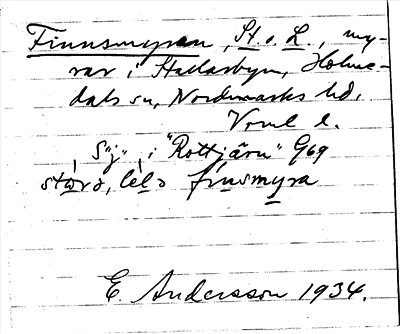 Finnsmyren, St. o. L., my-
rar i Stallarbyn, Holme-
dals sn, Nordmarks hd,
Vrml l.
, S "j" , i "Rottjärn" G69
stora, lela finsmyra
E. Andersson 1934.